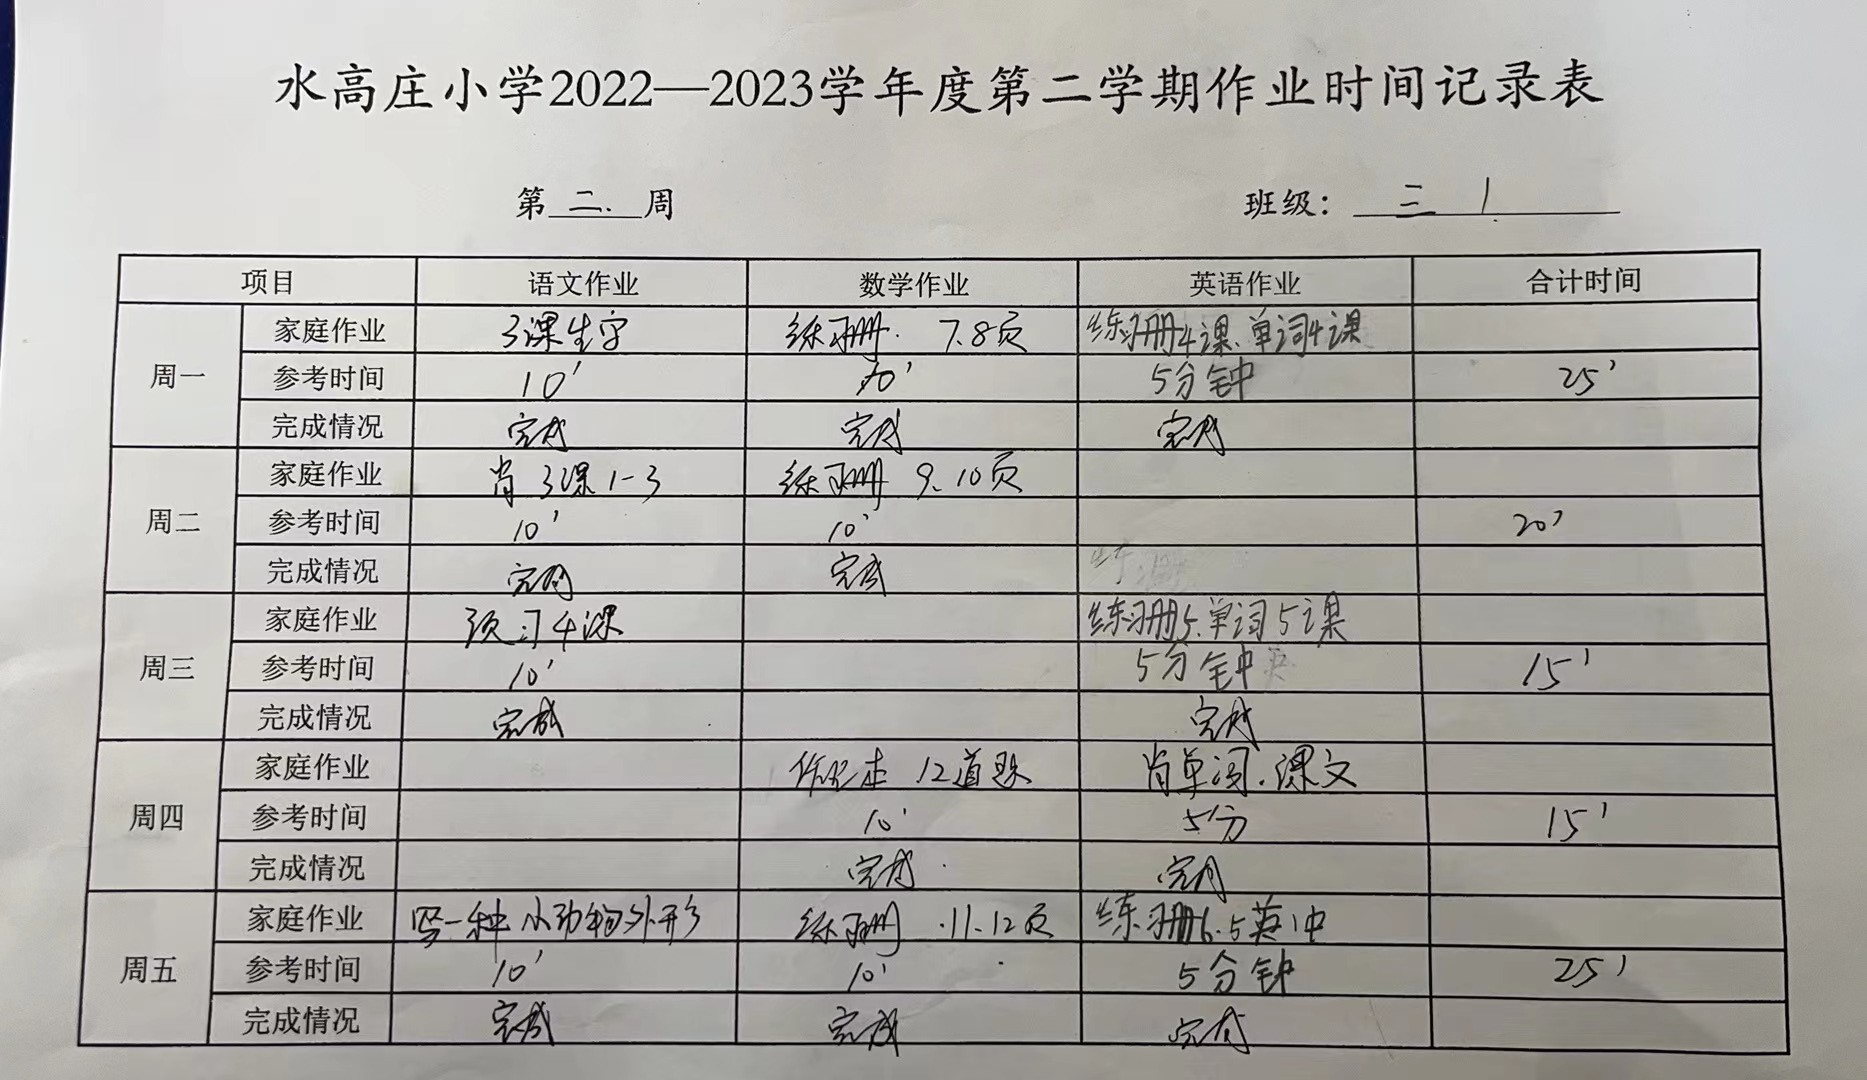 水高庄小学2022—2023学年度第二学期作业时间记录表
第 二. 周 班级： 三 1
项目 语文作业 数学作业 英语作业 合计时间
周一 家庭作业 3课生字 练习册. 7.8页 练习册4课.单词4课
参考时间 10' 10' 5分钟 25'
完成情况 完成 完成 完成
周二 家庭作业 背3课1-3 练习册 9.10页
参考时间 10' 10' 20'
完成情况 完成 完成
周三 家庭作业 预习4课 练习册5.单词5课
参考时间 10' 5分钟 15'
完成情况 完成 完成
周四 家庭作业 作业本 12道题 背单词.课文
参考时间 10' 5分 15'
完成情况 完成 完成
周五 家庭作业 写一种小动物外形 练习册.11.12页 练习册6.5英1中
参考时间 10' 10' 5分钟 25'
完成情况 完成 完成 完成